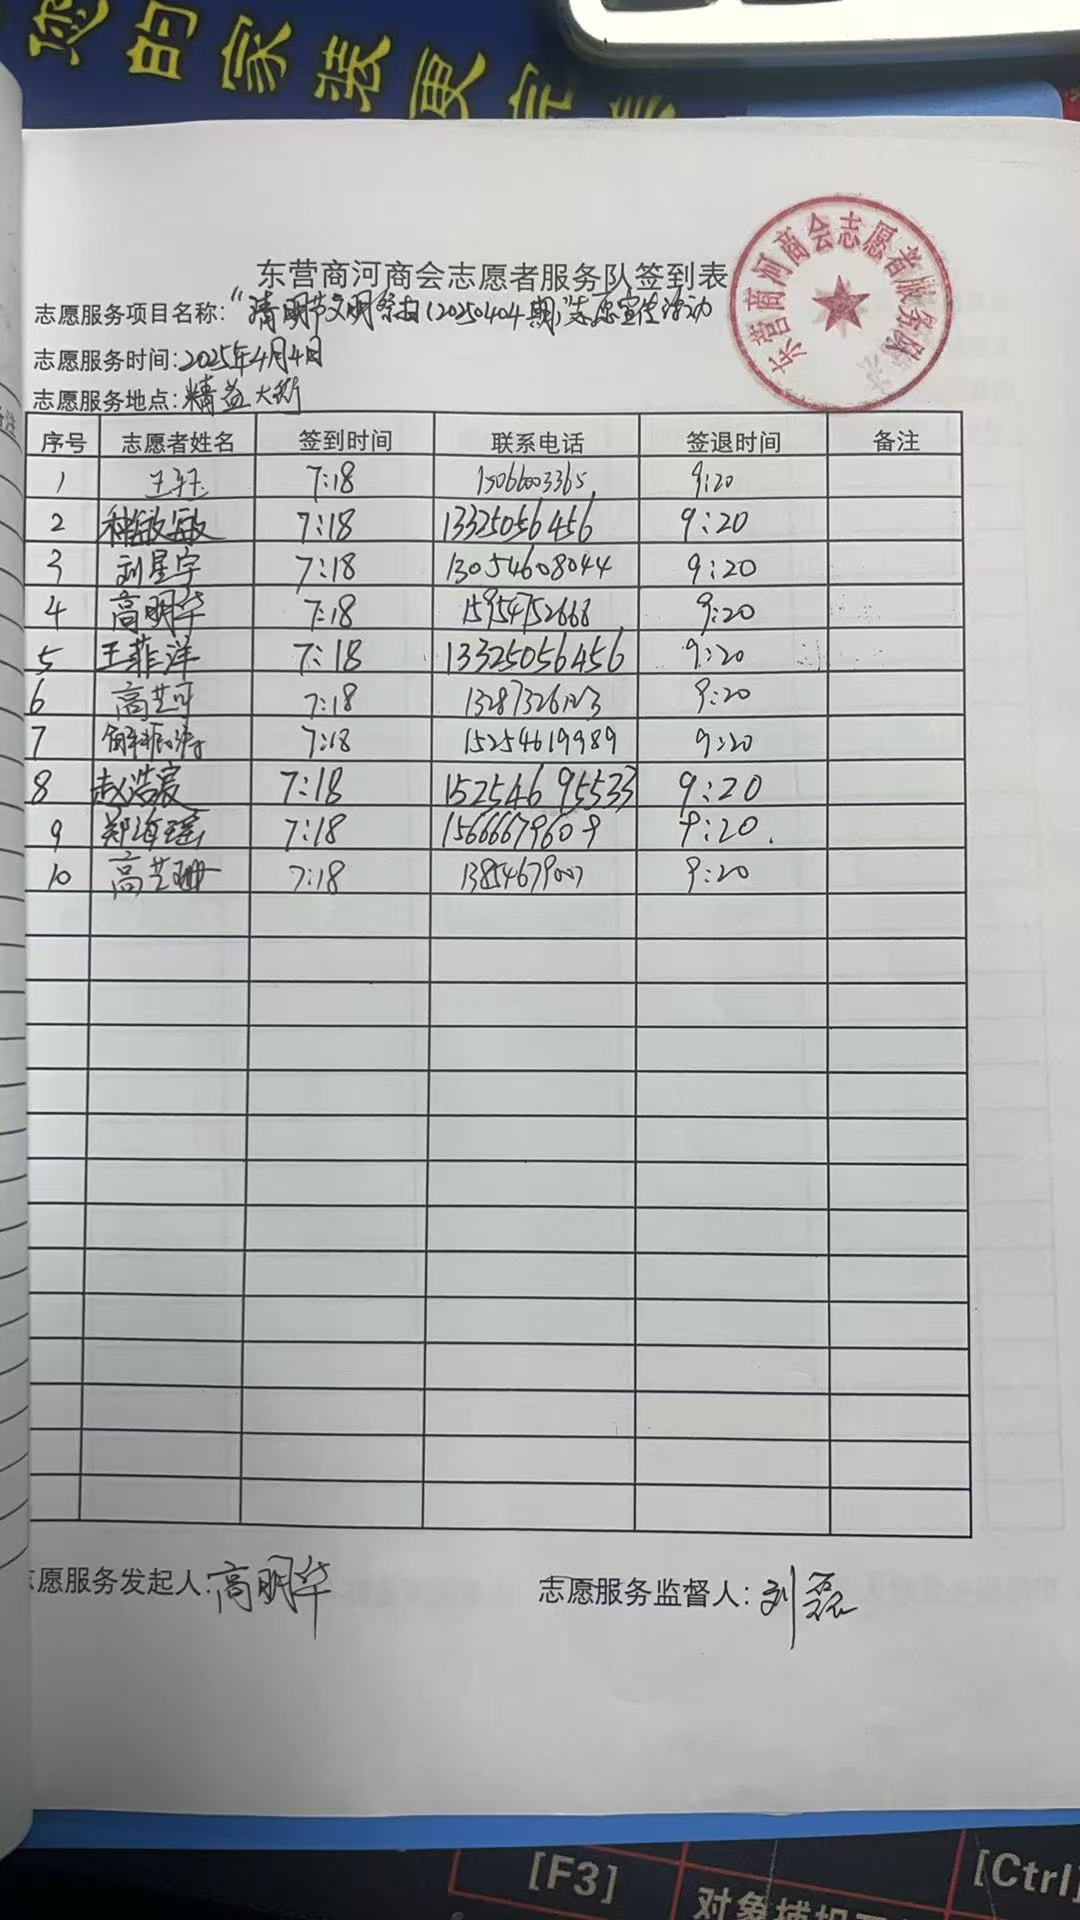 您的家装更完美
东营商河商会志愿者服务队签到表
东营商河商会志愿者服务队
志愿服务项目名称:"清明节文明祭扫(20250404期)"志愿宣传活动
志愿服务时间:2025年4月4日
志愿服务地点:精益大街
序号 志愿者姓名 签到时间 联系电话 签退时间 备注
1 王珏 7:18 15066003365 9:20
2 敏敏 7:18 13325056456 9:20
3 刘星宇 7:18 13054608044 9:20
4 高明华 7:18 15954752668 9:20
5 王菲洋 7:18 13325056456 9:20
6 高芝可 7:18 13287326123 9:20
7 解 7:18 15254619989 9:20
8 赵浩宸 7:18 15254695533 9:20
9 郑海瑶 7:18 15666679609 9:20.
10 高芝珊 7:18 13854679007 9:20
志愿服务发起人:高明华 志愿服务监督人:刘磊
[F3] [Ctrl
对象捕捉